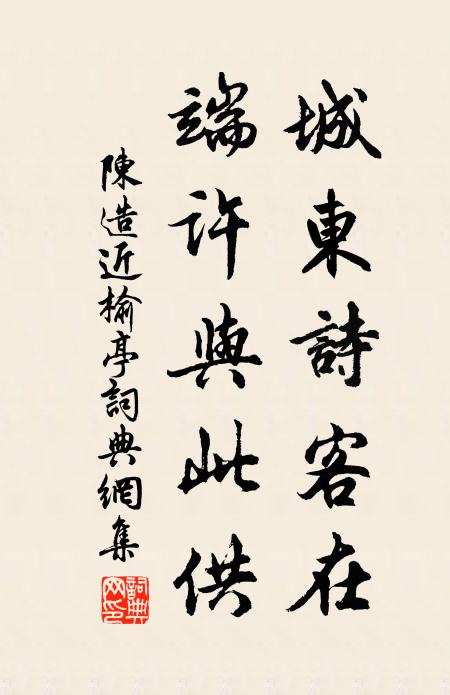 城東詩客在
端許與此供
陳造近榆亭詞典網集